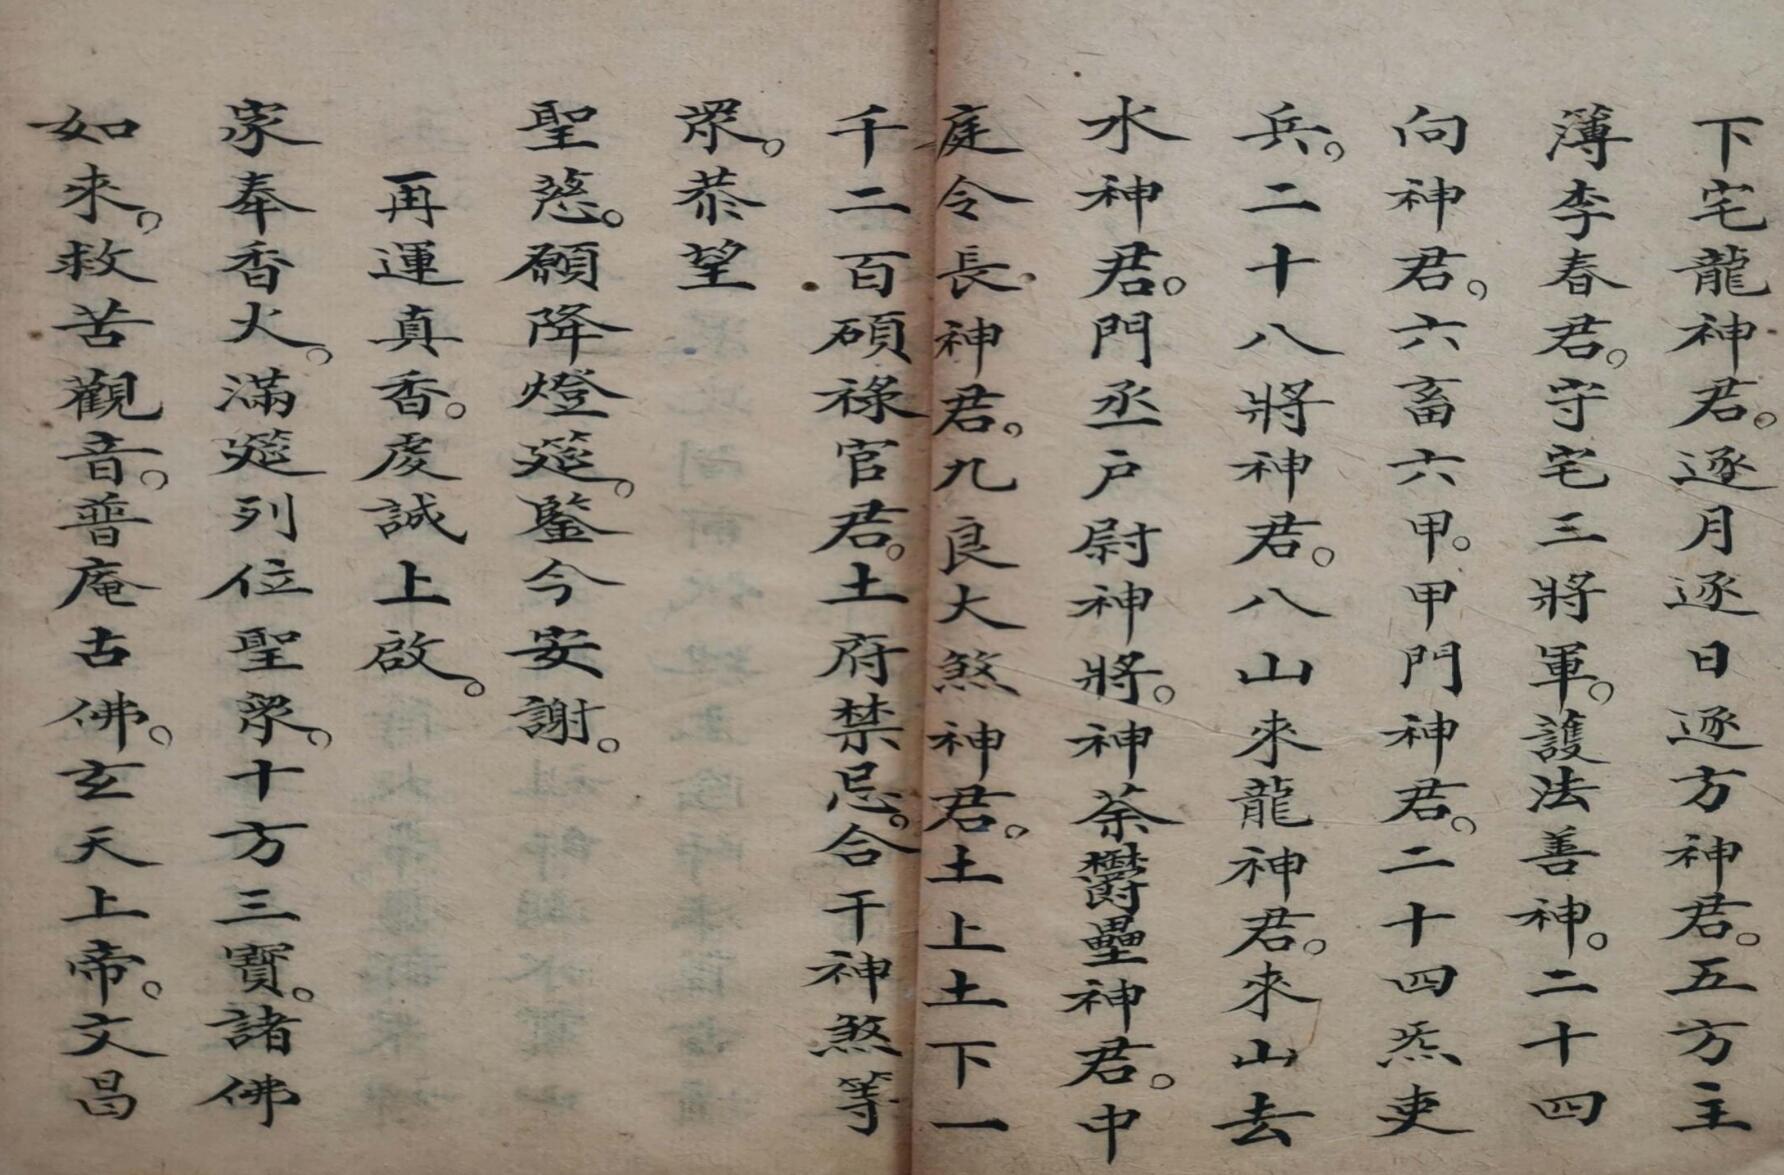 下宅龍神君。逐月逐日逐方神君。五方主
簿李春君。守宅三將軍。護法善神。二十四
向神君。六畜六甲。甲門神君。二十四炁吏
兵。二十八將神君。八山來龍神君。來山去
水神君。門丞户尉神將。神荼鬱壘神君。中
庭令長神君。九良大煞神君。土上土下一
千二百碩祿官君。土府禁忌。合干神煞等
眾。恭望
聖慈。願降燈筵。鑒今安謝。
再運真香。虔誠上啟。
家奉香火。滿筵列位聖眾。十方三寶。諸佛
如來。救苦觀音。普庵古佛。玄天上帝。文昌